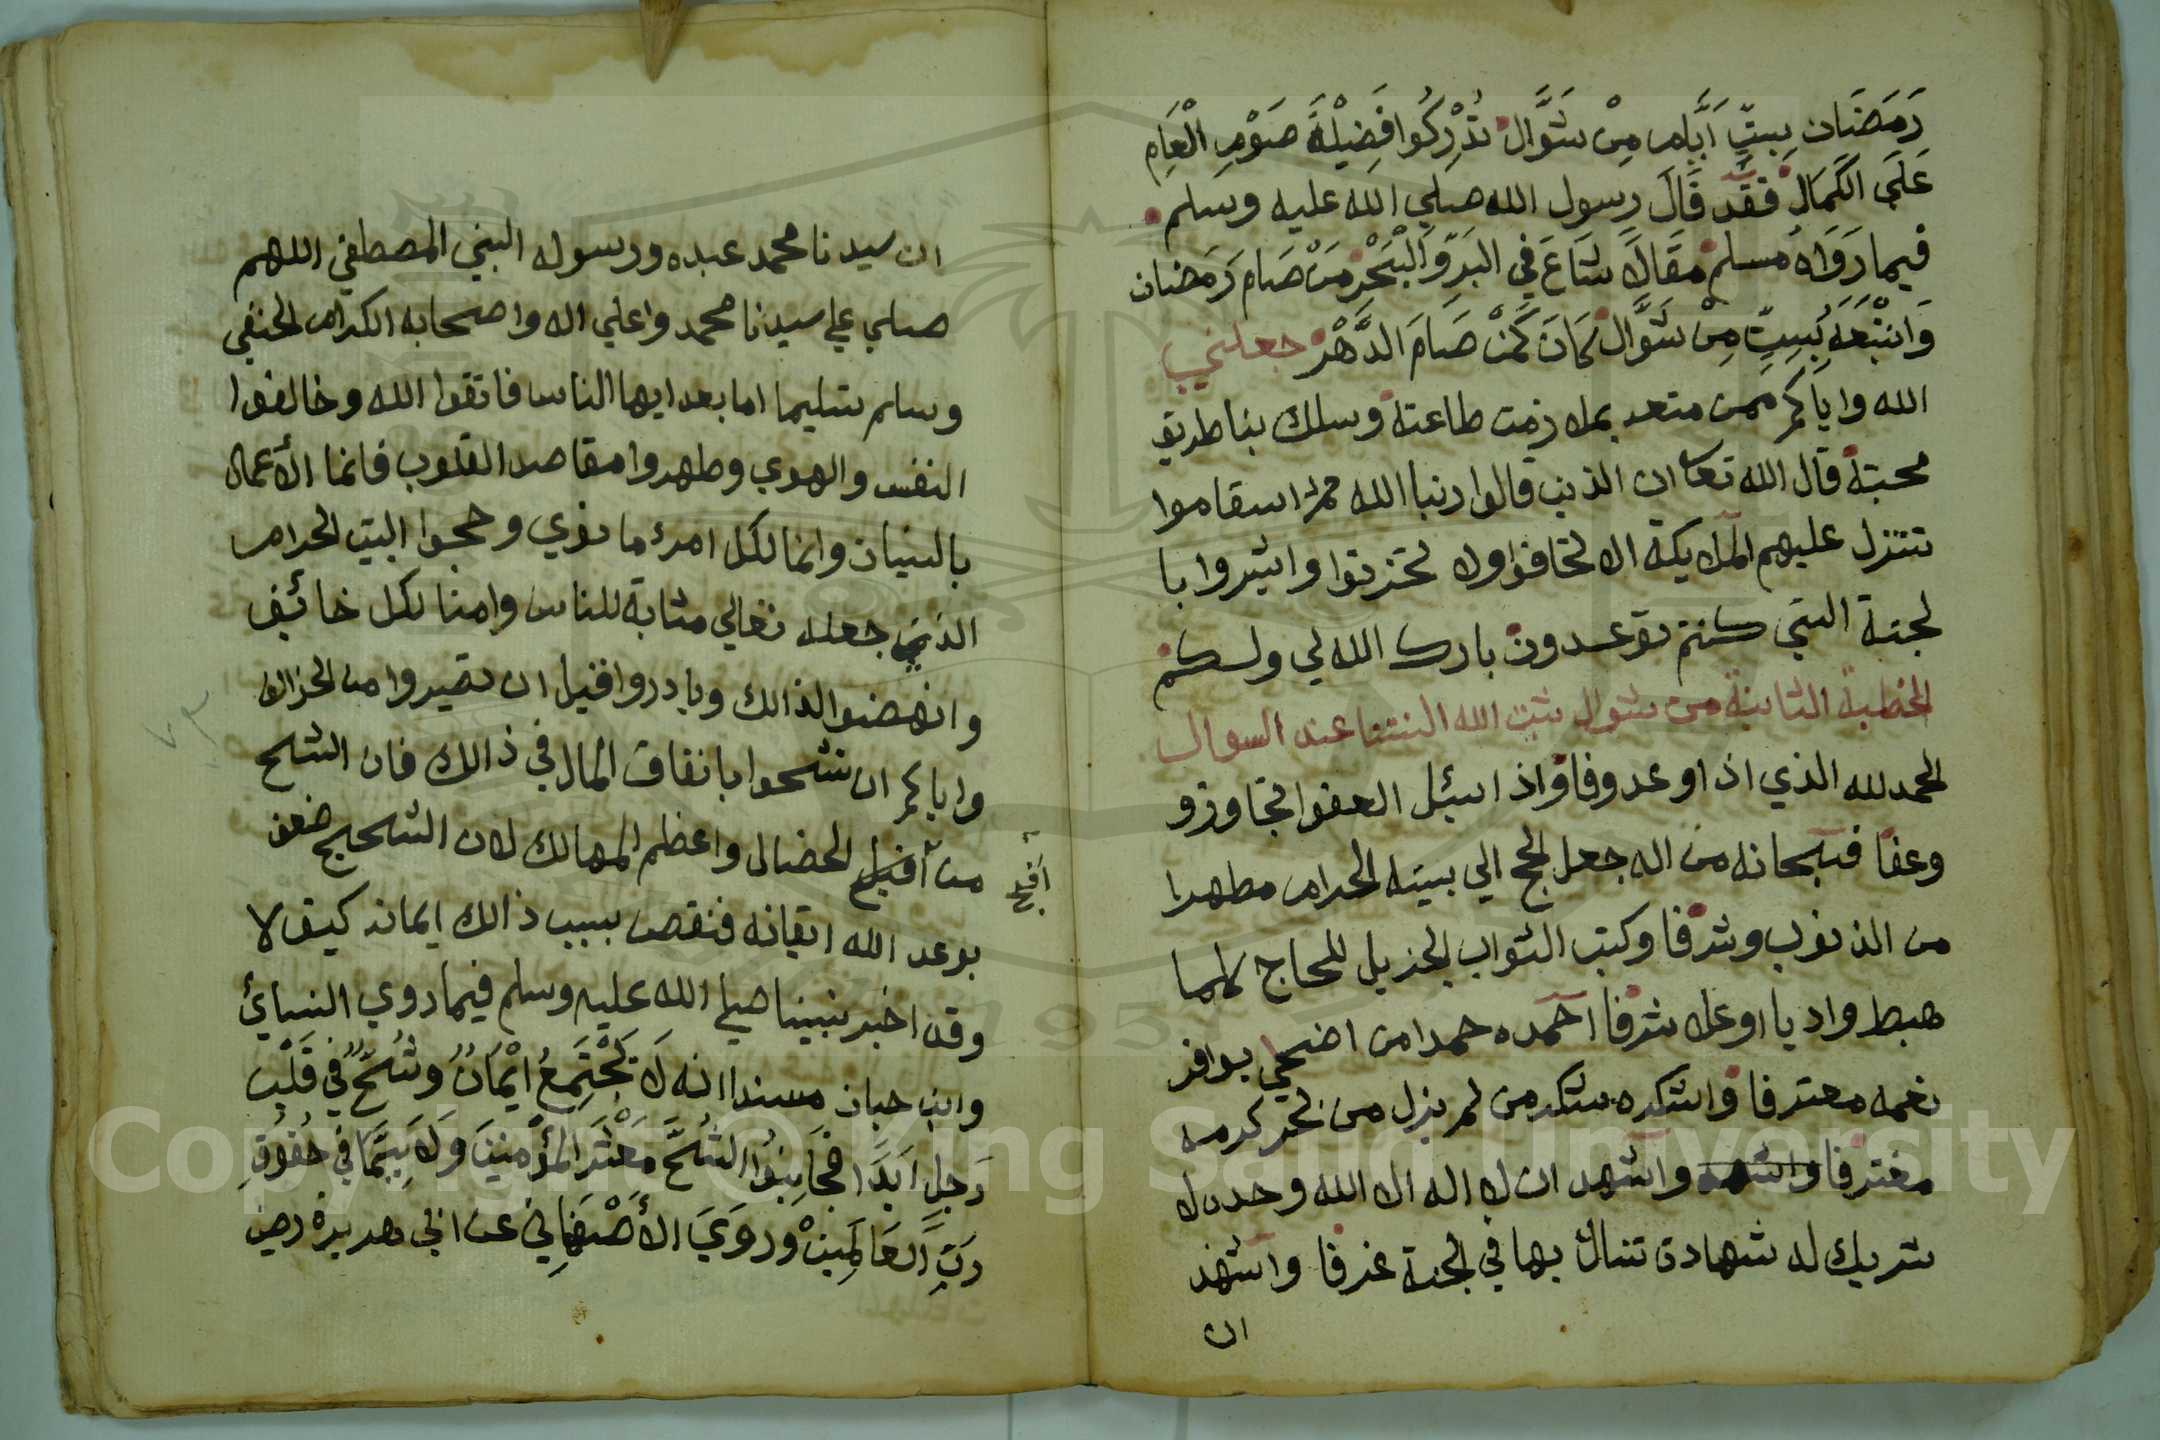 رَمَضَان بِسِتِّ اَيَّام مِنْ شَوَّال تُدْرِكُوا فَضِيْلَةَ صَوْمِ الْعَامِ
عَلَي الكَمَالِ فَقَد قَالَ رسول الله صلي الله عليه وسلم
فيما رَوَاهُ مُسلم مقَالاً شَاعَ فِي البَرِّ وَالْبَحْرِ مَنْ صَام رَمَضان
وَاتْبَعَهُ بِسِتٍّ مِنْ شَوَّال كَانَ كَمَنْ صَامَ الدَّهْر جعلني
الله واياكم ممن متعه بملازمت طاعته وسلك بنا طريق
محبته قال الله تعا ان الذين قالوا ربنا الله ثم استقاموا
تتنزل عليهم الملايكة الا تخافوا ولا تحزنوا وابشروا با
لجنة التي كنتم توعدون بارك الله لي ولكم
الخطبة الثانية من شوال ثبت الله الننتنا عند السوال
الحمد لله الذي اذا وعد وفا واذا سئل العفوا تجاوز و
وعفا فسبحانه من اله جعل الحج الي بيته الحرام مطهرا
من الذنوب وشرفا وكتب الثواب الجزيل للحاج كلما
هبط واديا او علا شرفا احمده حمدا من اضحي بوافر
نعمه معترفا واشكره شكر من لم يزل من بحر كرمه
مغترفا واشهد واشهد ان لا اله الا الله وحده لا
شريك له شهادة تنال بها في الجنة غرفا واشهد
ان
ان سيدنا محمد عبده ورسوله النبي المصطفي اللهم
صلي علي سيدنا محمد واعلي اله واصحابه الكرام الحنفي
وسلم تسليما اما بعد ايها الناس فاتقوا الله وخالفوا
النفس والهوي وطهروا مقاصد القلوب فانما الأعمال
بالنيات وانما لكل امرء ما نوي وحجوا البيت الحرام
الذي جعله تعالي مثابة للناس وامنا لكل خائف
وانهضوا لذالك وبادروا قبل ان تصيروا من الخزان
واياكم ان تشحوا بانفاق المال في ذالك فان الشح
من اقبح الخصال واعظم المهالك لان الشحيح ضعف
اقبح
بوعد الله ايقانه فنقص بسبب ذالك ايمانه كيف لا
وقد اخبر نبينا صلي الله عليه وسلم فيما روي النسائي
وابن حبان مسندا انه لاَ يَجْتَمِعُ اِيْمَانٌ وَشُحٌّ فِي قَلْبِ
رَجلٍ اَبَدًا فجَانِبُوا الشُّحَّ مَعْشَرَ المؤمِنينَ وَلاَ سِيَّمَا فِي حُقُوقِ
رَبِّ العَالَمِينْ وَرَوَيَ الأَصْبَهَانِي عن ابي هريرة رضي
٧٣
Copyright © King Saud University
1957